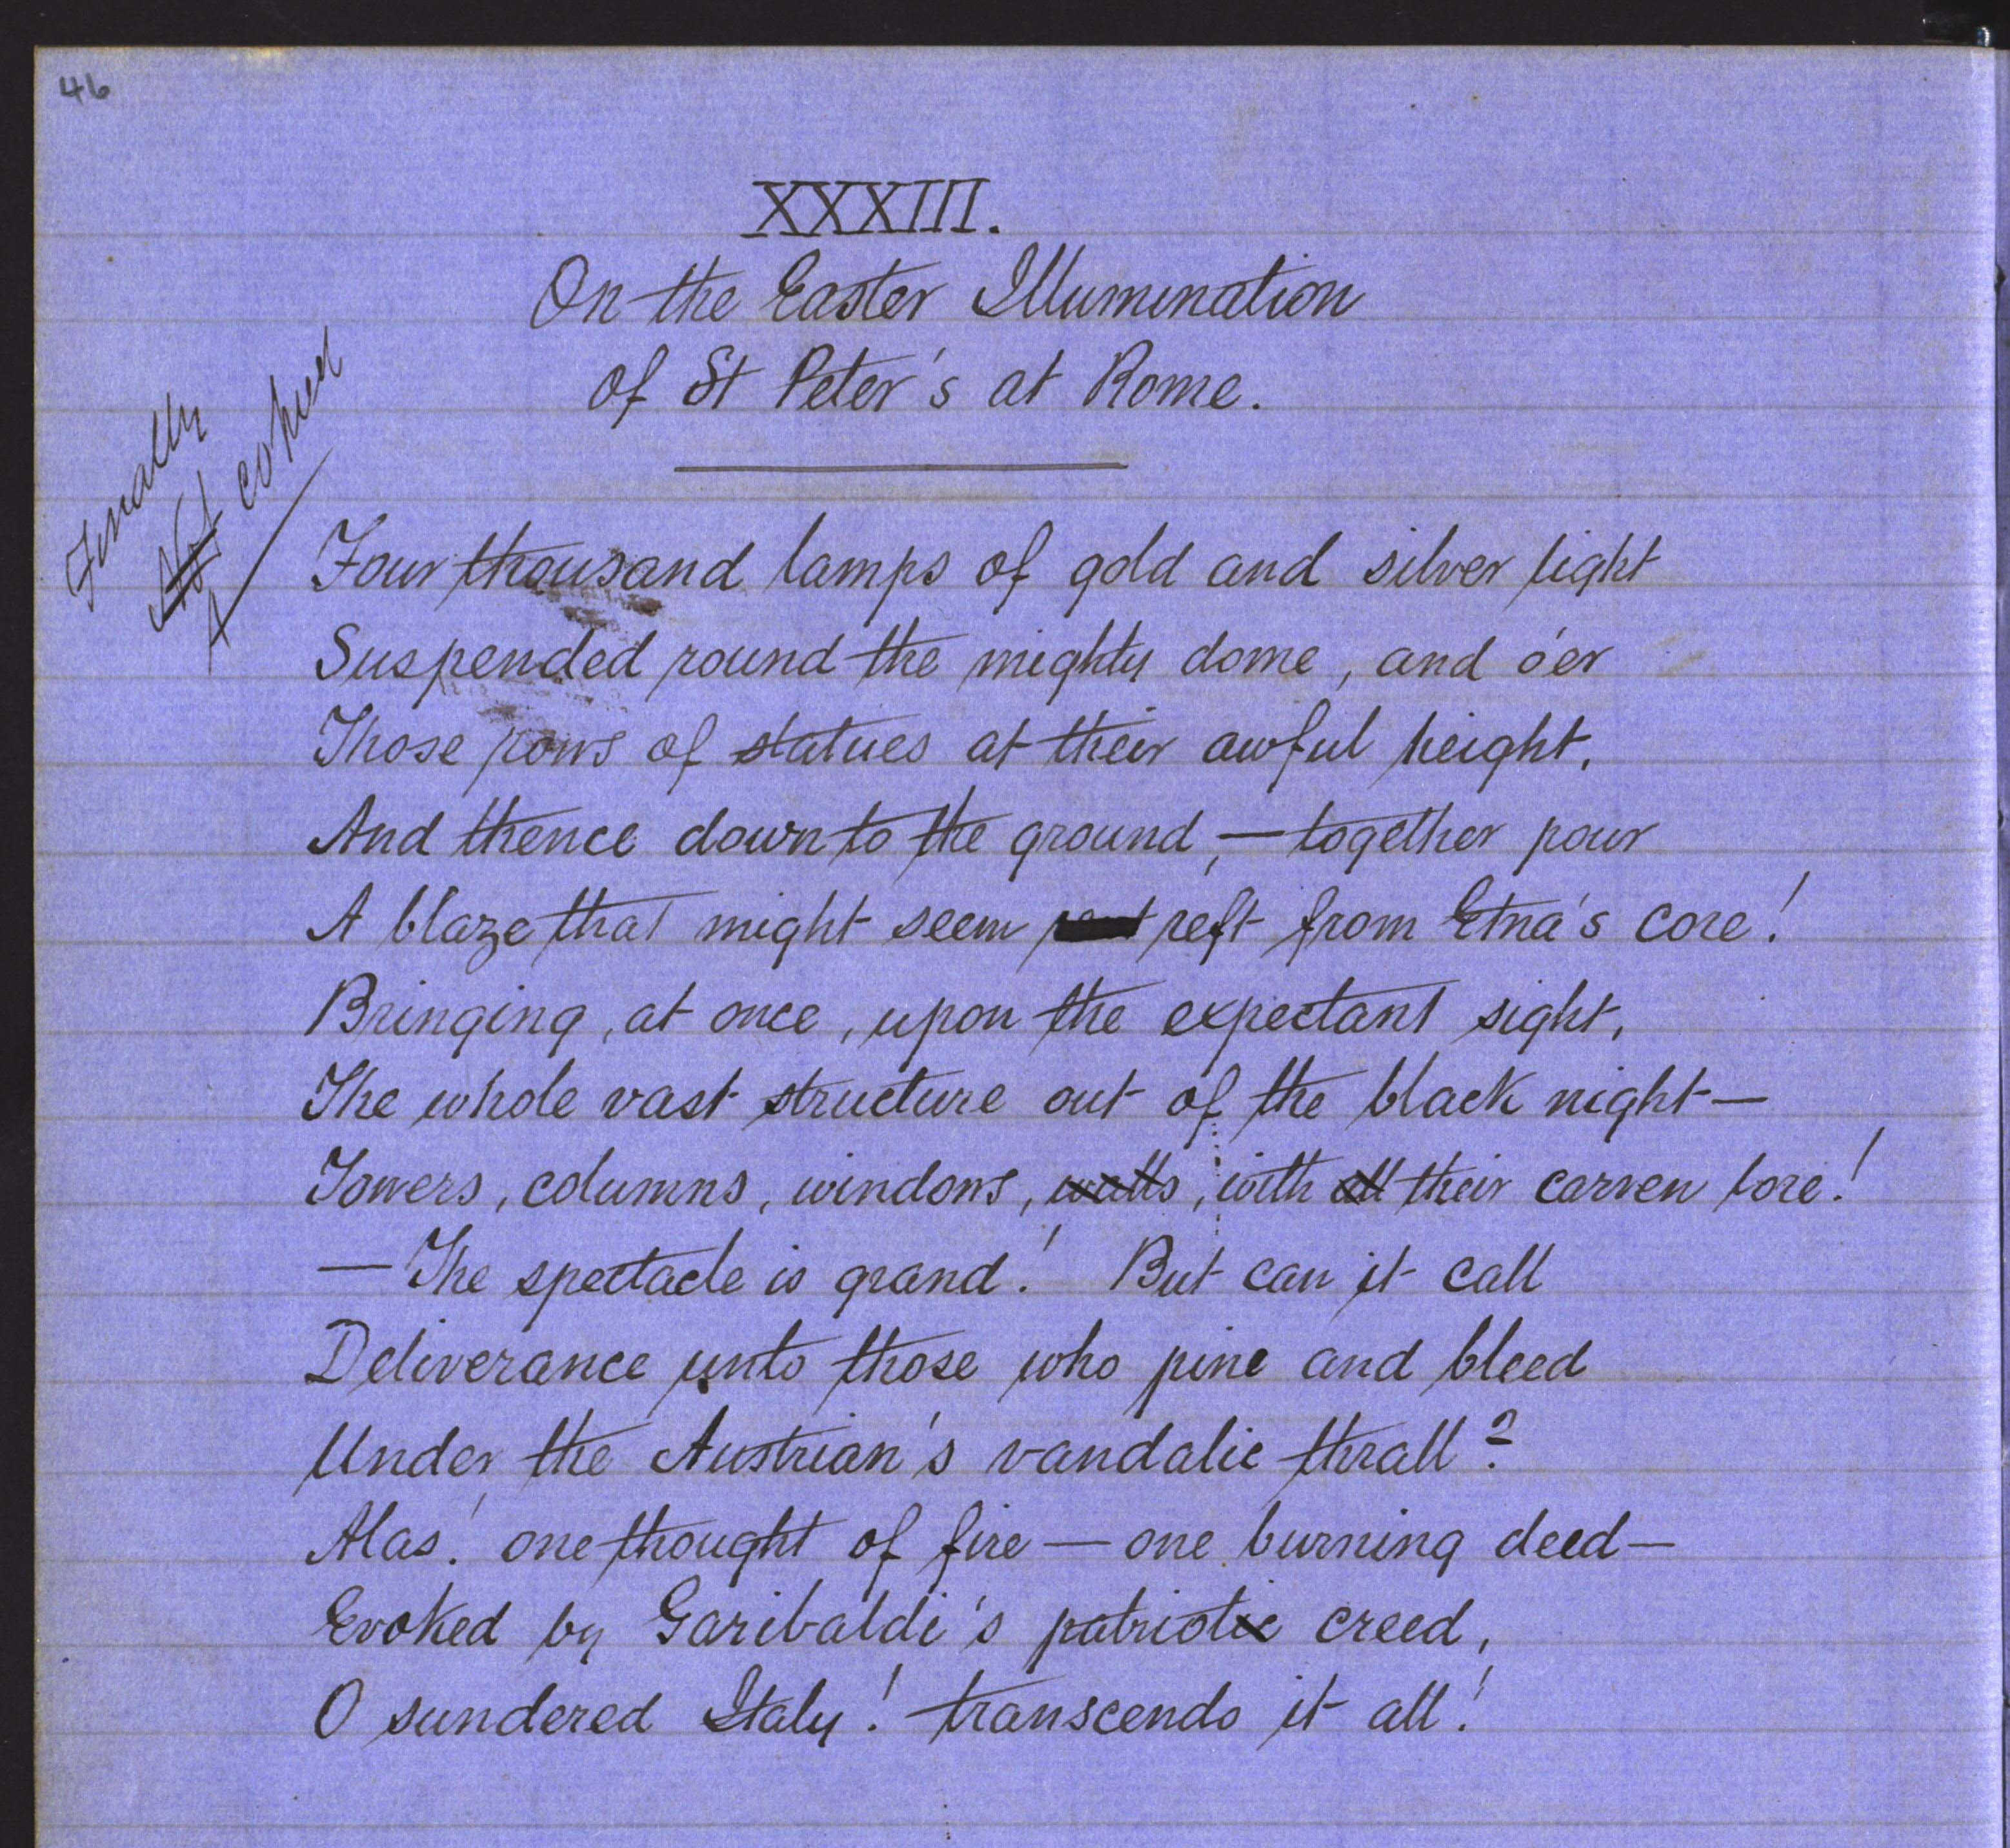 46
XXXIII.
On the Easter Illumination
of St Peter's at Rome.
Finally
Not copied
Four thousand lamps of gold and silver light
Suspended round the mighty dome, and o'er
Those rows of statues at their awful height,
And thence down to the ground,—together pour
A blaze that might seem reft from Etna's core!
Bringing, at once, upon the expectant sight,
The whole vast structure out of the black night—
Towers, columns, windows, walls, with all their carven lore!
—The spectacle is grand! But can it call
Deliverance unto those who pine and bleed
Under the Austrian's vandalic thrall?
Alas! one thought of fire—one burning deed—
Evoked by Garibaldi's patriotic creed,
O sundered Italy! transcends it all!